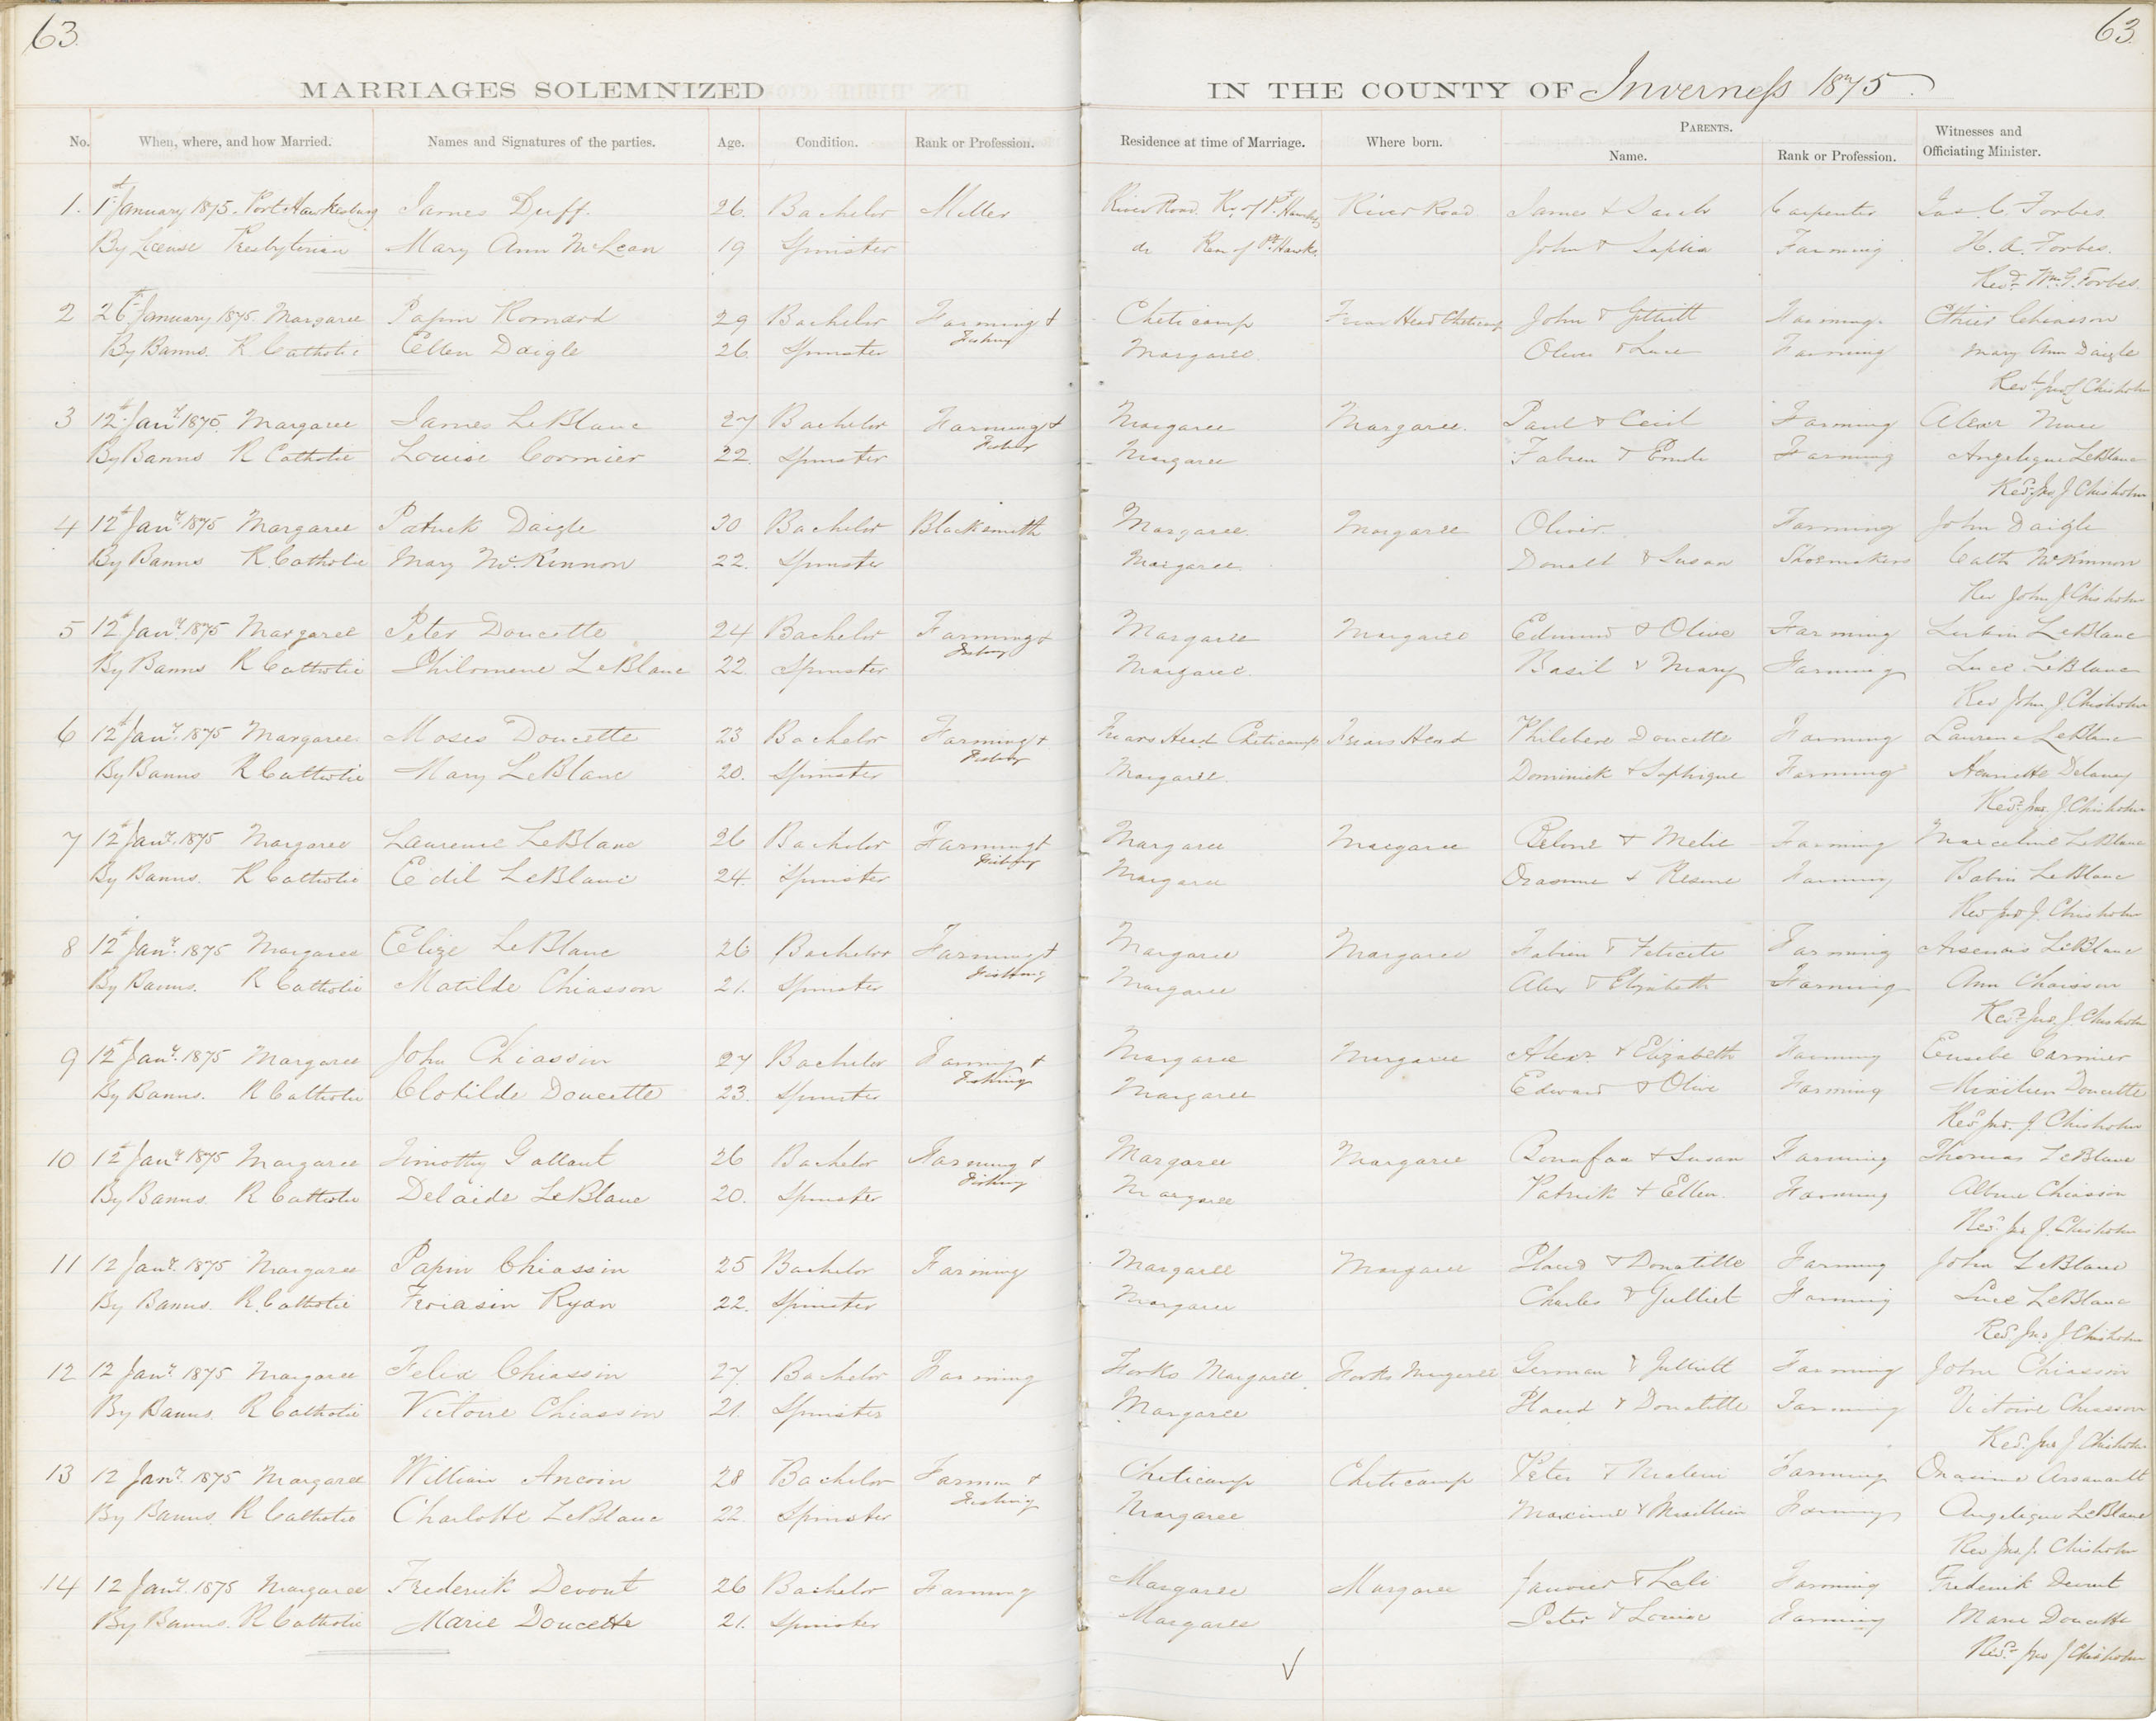 63
63
MARRIAGES SOLEMNIZED IN THE COUNTY OF Inverness 1875.
No. When, where, and how Married. Names and Signatures of the parties. Age. Condition. Rank or Profession. Residence at time of Marriage. Where born. PARENTS. Name. Rank or Profession. Witnesses and Officiating Minister.
1. 1st January 1875. Port Hawkesbury James Duff. 26. Bachelor Miller River Road River Road James & Sarah Carpenter Jas. C. Forbes.
By License Presbyterian Mary Ann McLean 19 Spinster do John & Sophia Farming H. A. Forbes.
Revd. Wm. G. Forbes.
2 26th January 1875. Margaree Papin Romard 29 Bachelor Farming & Fishing Cheticamp Friar Head Cheticamp John & Farming. Chiasson
By Banns. R Catholic Ellen Daigle 26. Spinster Margaree. Oliver & Luce Farming Mary Ann Daigle
Revd. Jno J Chisholm
3 12th Jany 1875. Margaree James LeBlanc 27 Bachelor Farming & Margaree Margaree. Paul & Cecil Farming Alexr
By Banns R Catholic Louise Cormier 22. Spinster Margaree Fabien & Farming Angelique LeBlanc
Revd. Jno J Chisholm
4 12th Jany. 1875 Margaree Patrick Daigle 30 Bachelor Blacksmith Margaree. Margaree Oliver Farming John Daigle
By Banns R. Catholic Mary McKinnon 22. Spinster Margaree Donald & Susan Shoemakers Cath McKinnon
Rev John J Chisholm
5 12th Jany. 1875 Margaree Peter Doucette 24 Bachelor Farming & Fishing Margaree Margaree Edmund & Olive Farming LeBlanc
By Banns R Catholic Philomene LeBlanc 22. Spinster Margaree. Basil & Mary Farming Luce LeBlanc
Rev John J Chisholm
6 12th Jany. 1875 Margaree Moses Doucette 23 Bachelor Farming & Friars Head Cheticamp Friars Head Philebere Doucette Farming Laurence LeBlanc
By Banns R Catholic Mary LeBlanc 20. Spinster Margaree. Dominick & Sophique Farming Henriette Delaney
Revd. Jno. J. Chisholm
7 12th Jany. 1875 Margaree Laurence LeBlanc 26 Bachelor Farming & Fishing Margaree Margaree Belone & Melie Farming Marceline LeBlanc
By Banns. R Catholic Edil LeBlanc 24. Spinster Margaree & Farming Babin LeBlanc
Rev Jno J. Chisholm
8 12th Jany. 1875 Margaree Elize LeBlanc 26 Bachelor Farming & Fishing Margaree Margaree Fabien & Felicite Farming LeBlanc
By Banns. R Catholic Matilde Chiasson 21. Spinster Margaree Alex & Elizabeth Farming Ann Chaisson
Revd. Jno. J. Chisholm
9 12th Jany. 1875 Margaree John Chiassin 27 Bachelor Farming & Fishing Margaree Margaree Alexr & Elizabeth Farming Eusebe Carmier
By Banns. R Catholic Clotilde Doucette 23. Spinster Margaree Edward & Olive Farming Doucette
Revd Jno. J Chisholm
10 12th Jany 1875 Margaree Timothy Gallant 26 Bachelor Farming & Fishing Margaree Margaree & Susan Farming Thomas LeBlanc
By Banns. R Catholic Delaide LeBlanc 20. Spinster Margaree Patrick & Ellen. Farming Chiasson
Revd. Jno J. Chisholm
11 12 Jany. 1875 Margaree Papin Chiassin 25 Bachelor Farming Margaree Margaree Placid & Donatille Farming John LeBlanc
By Banns. R. Catholic Froiasin Ryan 22. Spinster Margaree Charles & Farming Luce LeBlanc
Revd. Jno J Chisholm
12 12 Jany 1875 Margaree Felix Chiassin 27. Bachelor Farming Forks Margaree Forks Margaree German & Farming John Chiasson
By Banns. R Catholic Victoire Chiassin 21. Spinster Margaree Placid & Donatille Farming Victoire Chiasson
Revd. Jno J Chisholm
13 12 Jany. 1875 Margaree William Ancoin 28 Bachelor Farmin & Fishing Cheticamp Cheticamp Peter & Farming Onasime Arsanault
By Banns. R Catholic Charlotte LeBlanc 22. Spinster Margaree Maxime & Farming Angelique LeBlanc
Rev Jno. J. Chisholm
14 12 Jany. 1875 Margaree Frederick Devout 26 Bachelor Farming Margaree Margaree Janvier & Farming Frederick
By Banns. R Catholic Marie Doucette 21. Spinster Margaree Peter & Louise Farming Marie Doucette
Revd. Jno J Chisholm